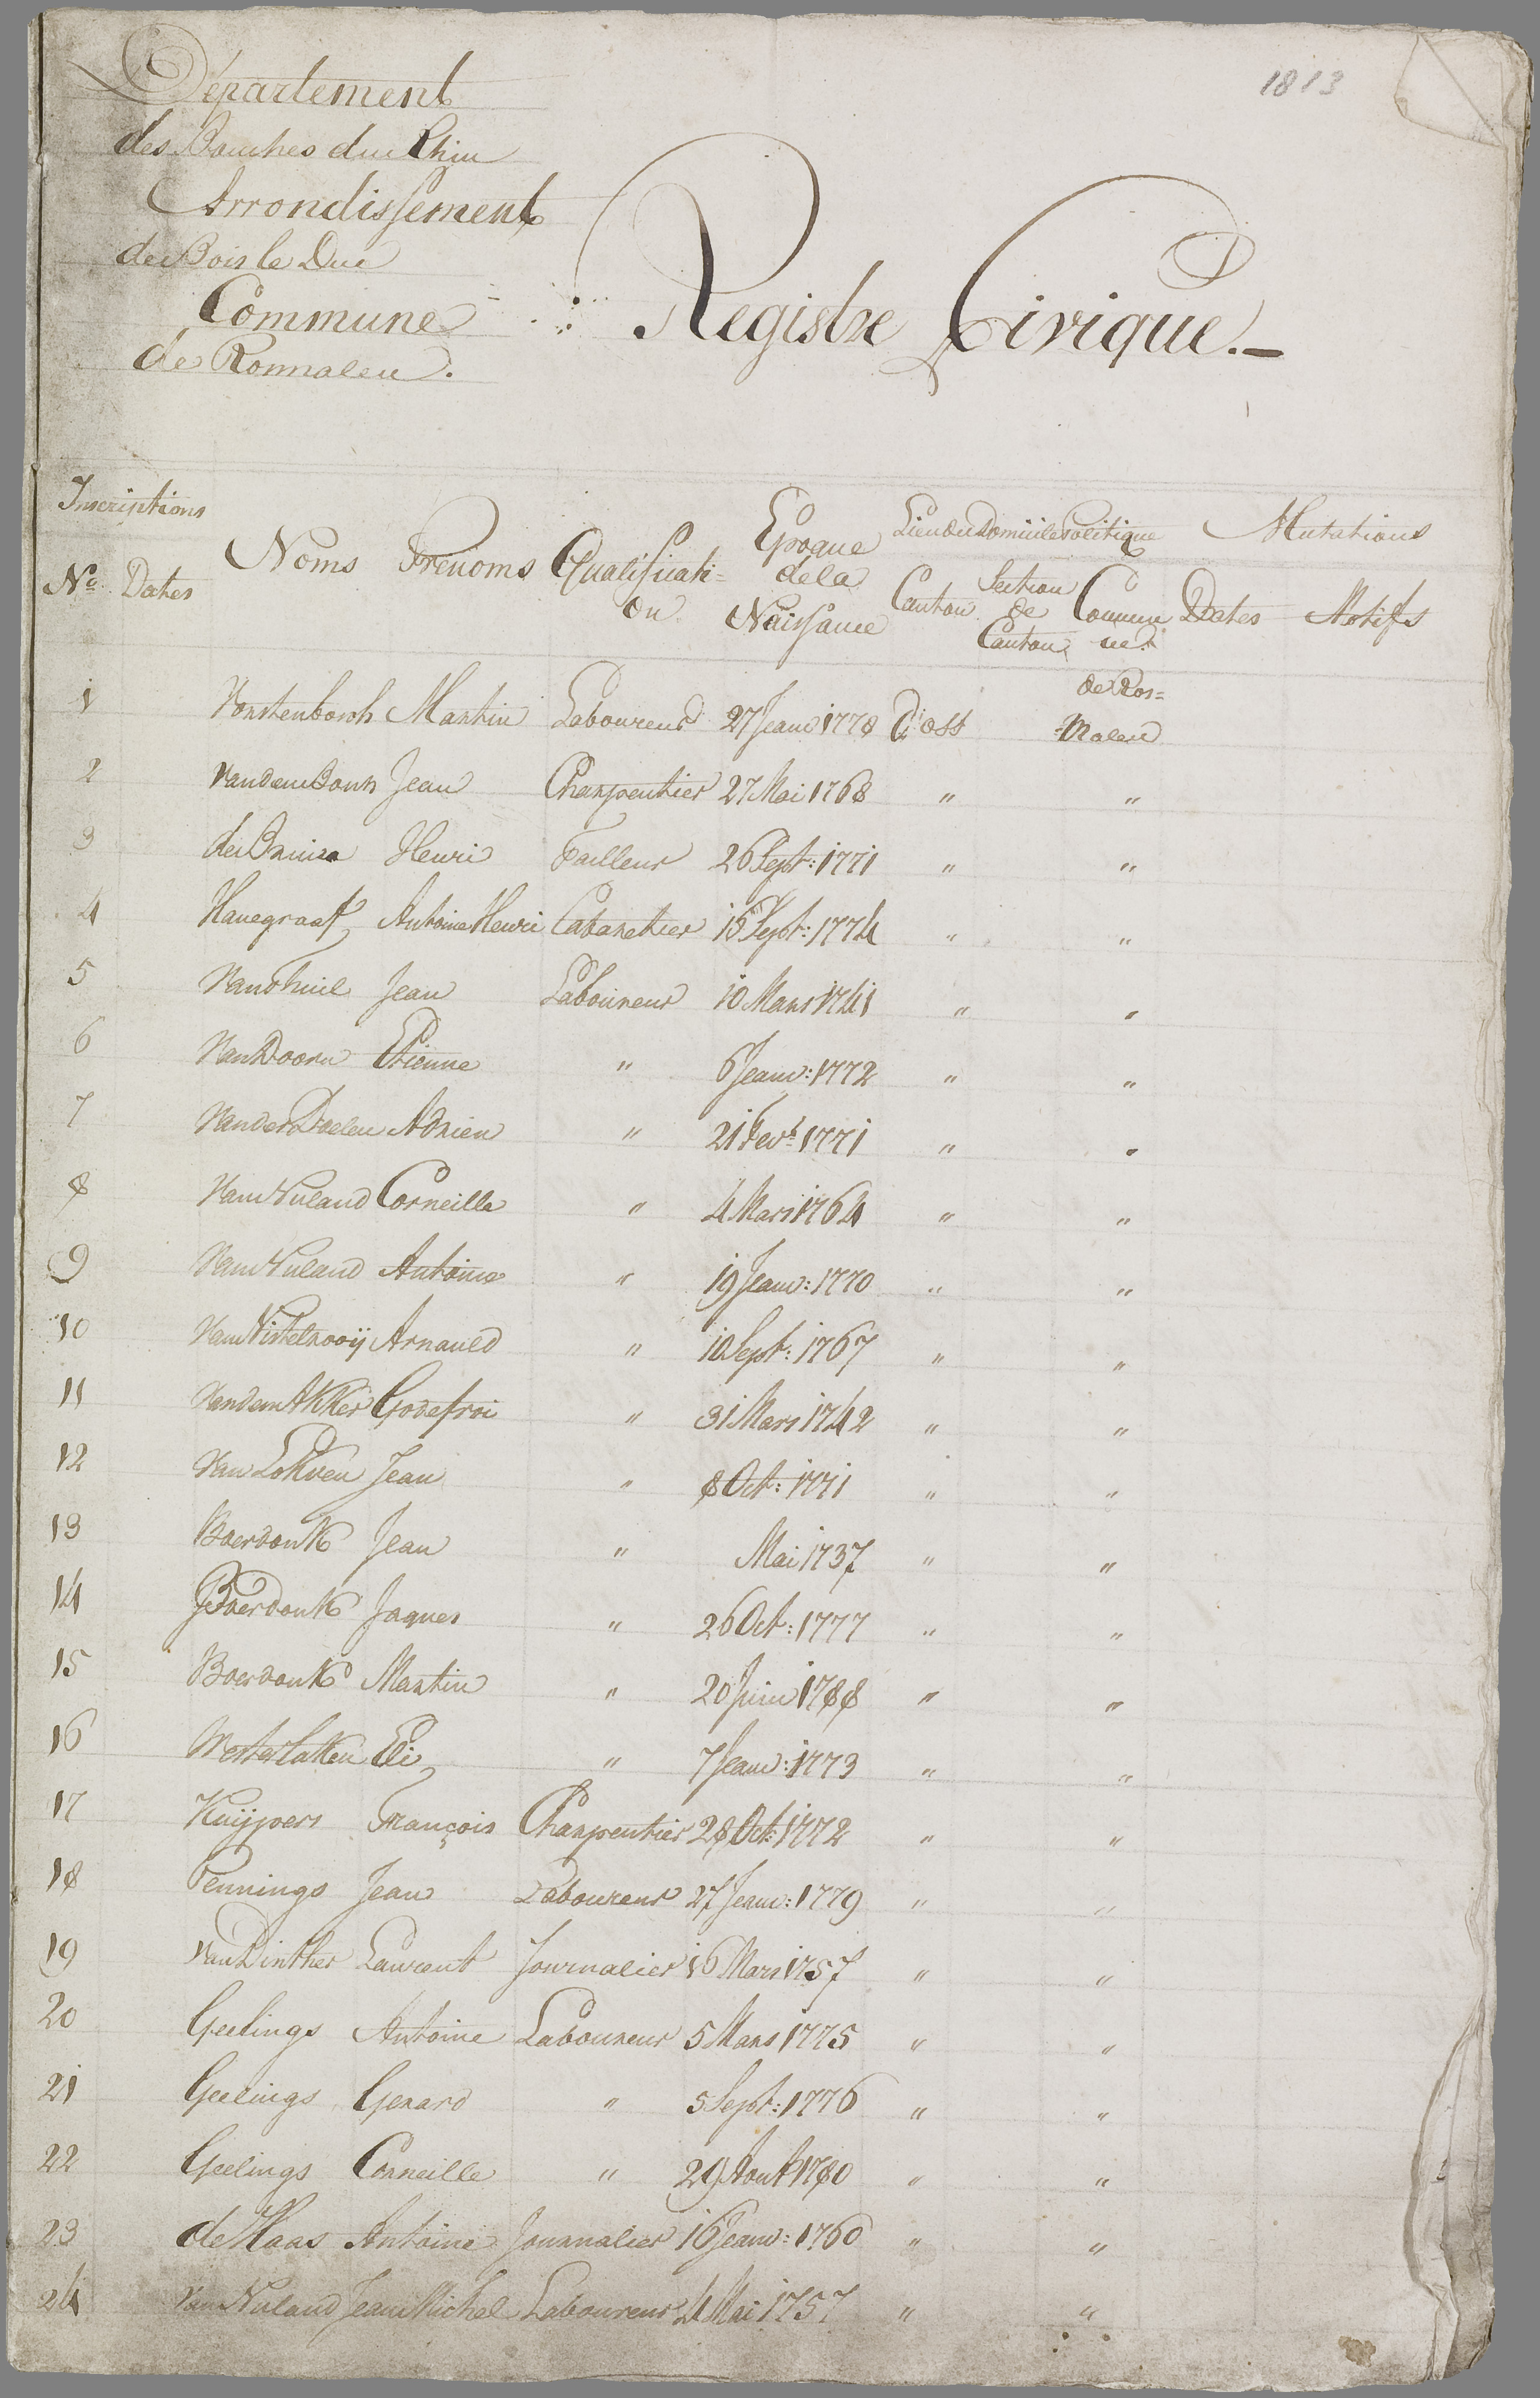 1813
Département
des Bouches du Rhin
Arrondissement
de Bois le Duc
Commune
de Rosmalen.
Registre Civique.
Inscriptions Noms Prénoms Qualificati= Epoque Lieu du Domicile Politique Mutations
No. Dates on de la Canton Section Commu Dates Motifs
Naissance de ne.
Canton
1 Vorstenbosch Martin Laboureur 27 Janv 1778 d'oss de Ros=
=malen
2 van den Bosch Jean Charpentier 27 Mai 1768 " "
3 de Bruin Henri Tailleur 26 Sept: 1771 " "
4 Hanegraaf Antoine Henri Cabaretier 15 Sept: 1774 " "
5 van Thuil Jean Laboureur 10 Mars 1741 " "
6 van Doorn Etienne " 6 Janv: 1772 " "
7 van der Doelen Adrien " 21 Fevr 1771 " "
8 van Nuland Corneille " 4 Mars 1764 " "
9 van Nuland Antoine " 19 Janv: 1770 " "
10 van Nistelrooij Arnauld " 10 Sept: 1767 " "
11 van den Akker Godefroi " 31 Mars 1742 " "
12 van Lokven Jean " 8 Oct: 1771 " "
13 Boerdonk Jean " Mai 1737 " "
14 Boerdonk Jaques " 26 Oct: 1777 " "
15 Boerdonk Martin " 20 Juin 1788 " "
16 Westerlaken Eli " 7 Janv: 1773 " "
17 Kuijpers François Charpentier 28 Oct: 1772 " "
18 Pennings Jean Laboureur 27 Janv: 1779 " "
19 van Dinther Laurent Journalier 16 Mars 1757 " "
20 Geelings Antoine Laboureur 5 Mars 1775 " "
21 Geelings Gerard " 5 Sept: 1776 " "
22 Geelings Corneille " 29 Aout 1780 " "
23 de Haas Antoine Journalier 16 Janv: 1760 " "
24 van Nuland Jean Michel Laboureur 4 Mai 1757 " "